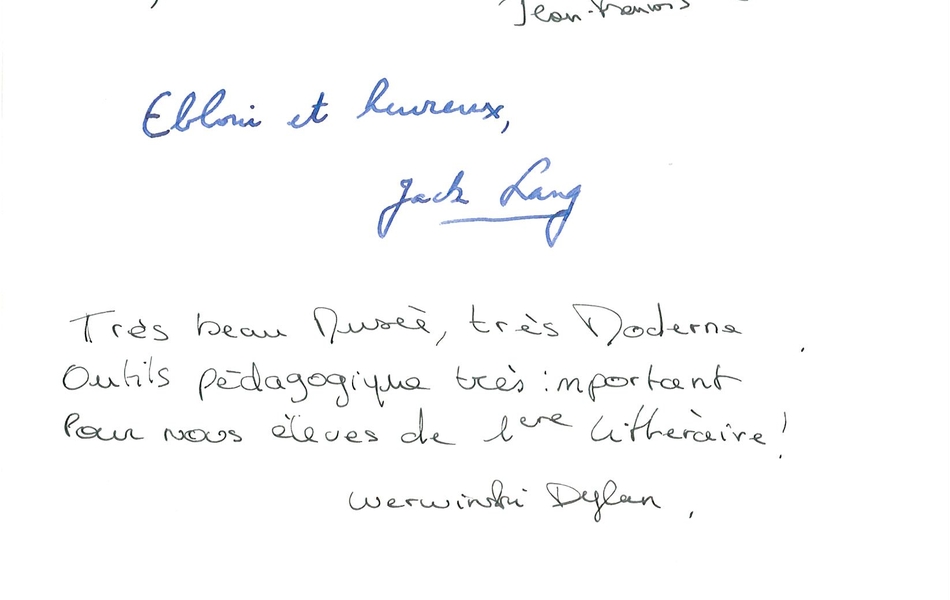 Jean-François
Ebloui et heureux,
Jack Lang
Très beau Museè, très Moderne
Outils pédagogique très important
Pour nous élèves de 1ere Littherairе!
Werwinski Dylan